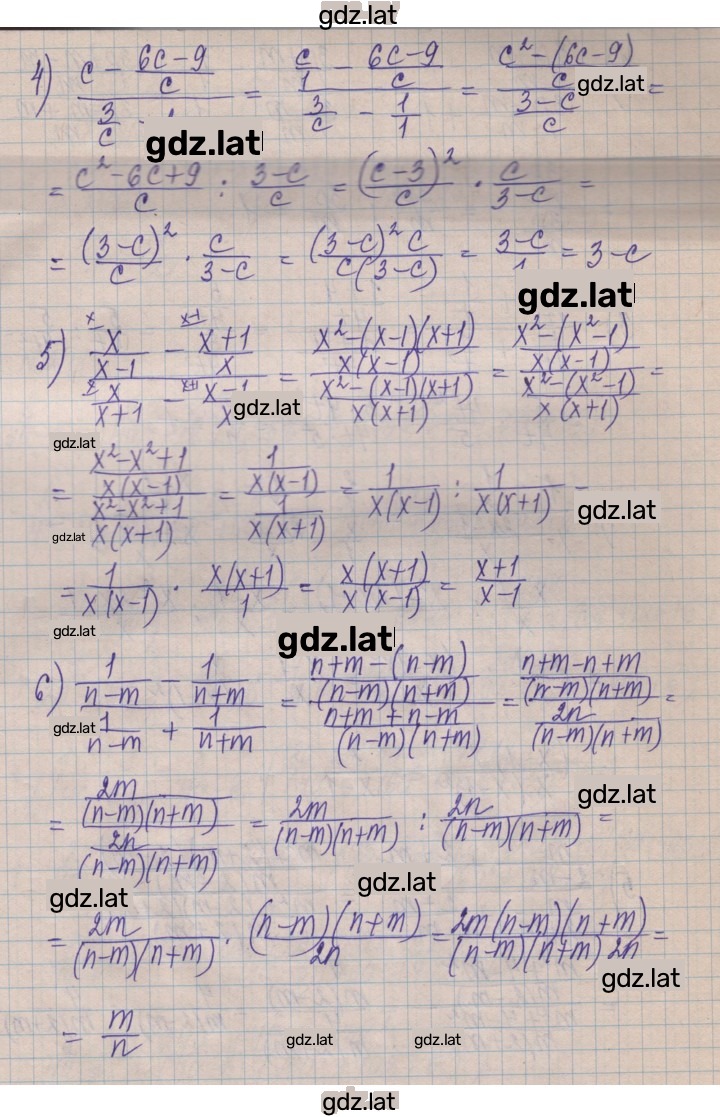 gdz.lat
4) (c - (6c-9)/c) / (3/c - 1) = (c/1 - (6c-9)/c) / (3/c - 1/1) = ((c² - (6c-9))/c) / ((3-c)/c) =
gdz.lat
gdz.lat
= (c² - 6c + 9)/c : (3-c)/c = (c-3)²/c · c/(3-c) =
= (3-c)²/c · c/(3-c) = (3-c)² c / c(3-c) = (3-c)/1 = 3-c
gdz.lat
5) (x/(x-1) - (x+1)/x) / (x/(x+1) - (x-1)/x) = ((x² - (x-1)(x+1))/x(x-1)) / ((x² - (x-1)(x+1))/x(x+1)) = ((x² - (x²-1))/x(x-1)) / ((x² - (x²-1))/x(x+1)) =
gdz.lat
gdz.lat
= ((x² - x² + 1)/x(x-1)) / ((x² - x² + 1)/x(x+1)) = (1/x(x-1)) / (1/x(x+1)) = 1/x(x-1) : 1/x(x+1) =
gdz.lat
gdz.lat
= 1/x(x-1) · x(x+1)/1 = x(x+1)/x(x-1) = (x+1)/(x-1)
gdz.lat
gdz.lat
6) (1/(n-m) - 1/(n+m)) / (1/(n-m) + 1/(n+m)) = ((n+m-(n-m))/(n-m)(n+m)) / ((n+m+n-m)/(n-m)(n+m)) = ((n+m-n+m)/(n-m)(n+m)) / (2n/(n-m)(n+m)) =
gdz.lat
= (2m/(n-m)(n+m)) / (2n/(n-m)(n+m)) = 2m/(n-m)(n+m) : 2n/(n-m)(n+m) =
gdz.lat
gdz.lat
gdz.lat
= 2m/(n-m)(n+m) · (n-m)(n+m)/2n = 2m(n-m)(n+m)/(n-m)(n+m) 2n =
gdz.lat
= m/n
gdz.lat
gdz.lat
gdz.lat